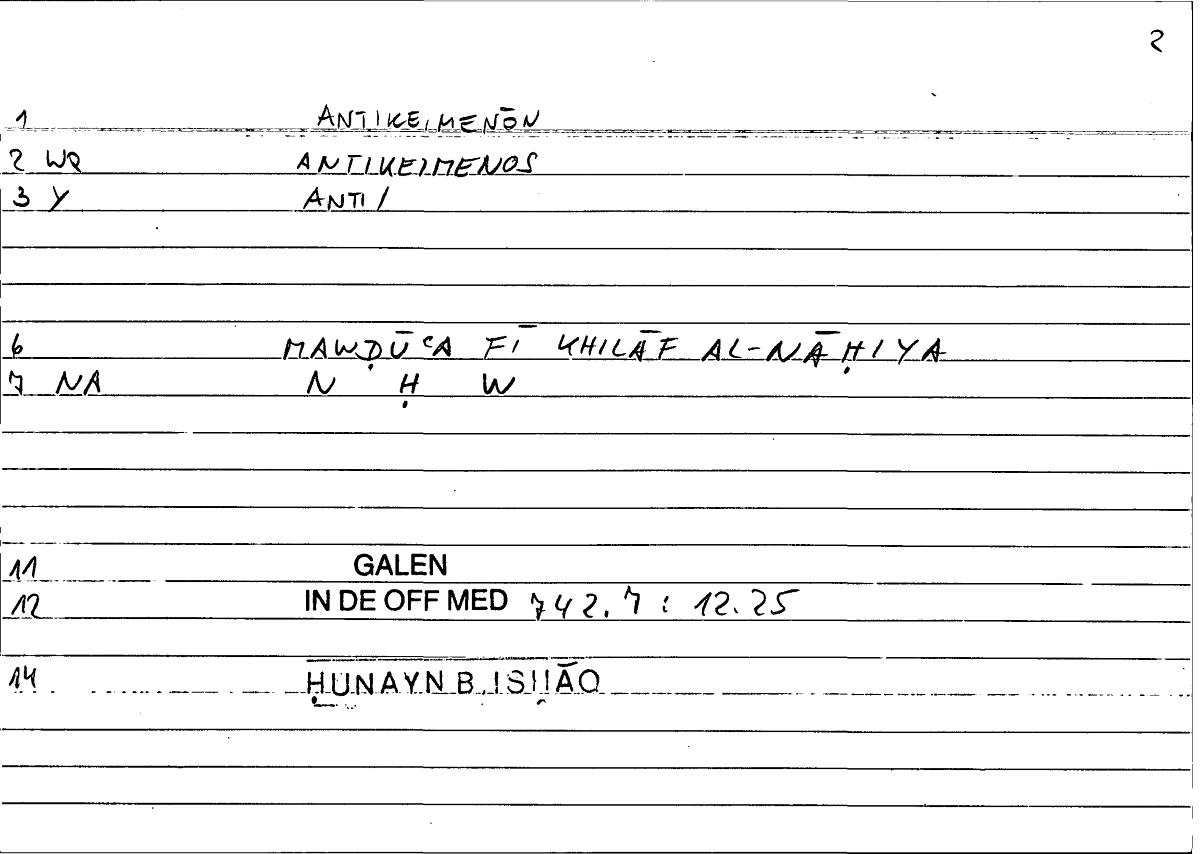 2
1 ANTIKEIMENŌN
2 WR ANTIKEIMENOS
3 Y ANTI/
6 MAWḌŪʿA FĪ KHILĀF AL-NĀḤIYA
7 NA N Ḥ W
11 GALEN
12 IN DE OFF MED 742.7 : 12.25
14 ḤUNAYN B. ISḤĀQ